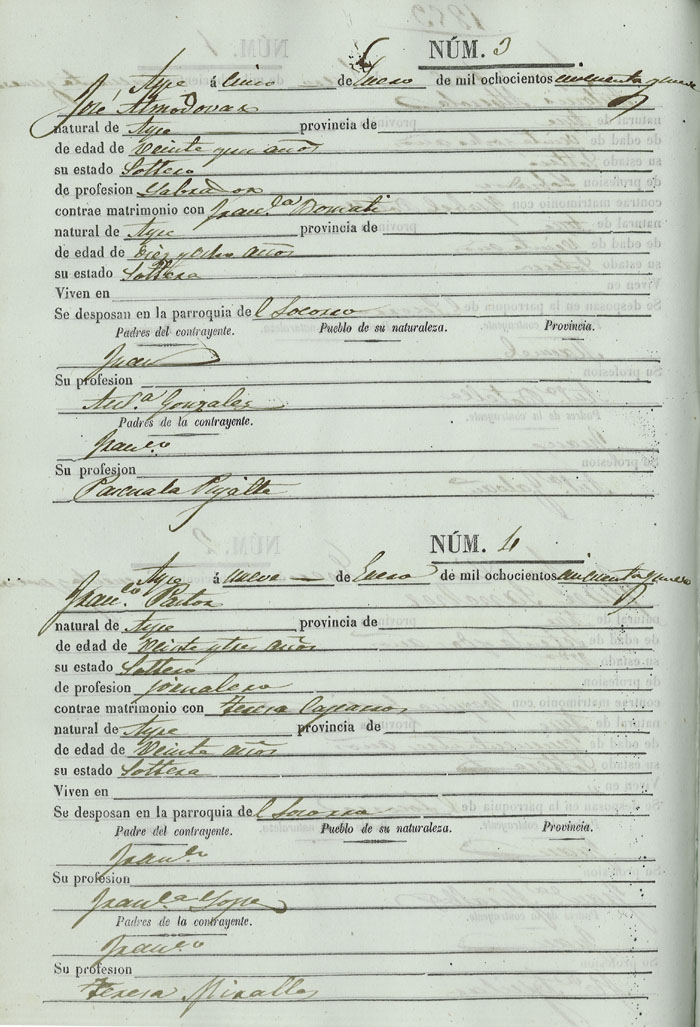 NÚM. 3
Aspe á cinco de Enero de mil ochocientos cincuenta y nueve
José Almodovar
natural de Aspe provincia de
de edad de veinte y un años
su estado Soltero
de profesion Labrador
contrae matrimonio con Fran.ca
natural de Aspe provincia de
de edad de diez y ocho años
su estado Soltera
Viven en
Se desposan en la parroquia del Socorro
Padres del contrayente. Pueblo de su naturaleza. Provincia.
Juan
Su profesion
Ant.a Gonzalez
Padres de la contrayente.
Fran.co
Su profesion
Pascuala
NÚM. 4
Aspe á nueve de Enero de mil ochocientos cincuenta y nueve
Fran.co Pastor
natural de Aspe provincia de
de edad de veinte y tres años
su estado Soltero
de profesion jornalero
contrae matrimonio con Teresa
natural de Aspe provincia de
de edad de veinte años
su estado Soltera
Viven en
Se desposan en la parroquia del Socorro
Padre del contrayente. Pueblo de su naturaleza. Provincia.
Fran.co
Su profesion
Fran.ca Lopez
Padres de la contrayente.
Fran.co
Su profesion
Teresa Miralles